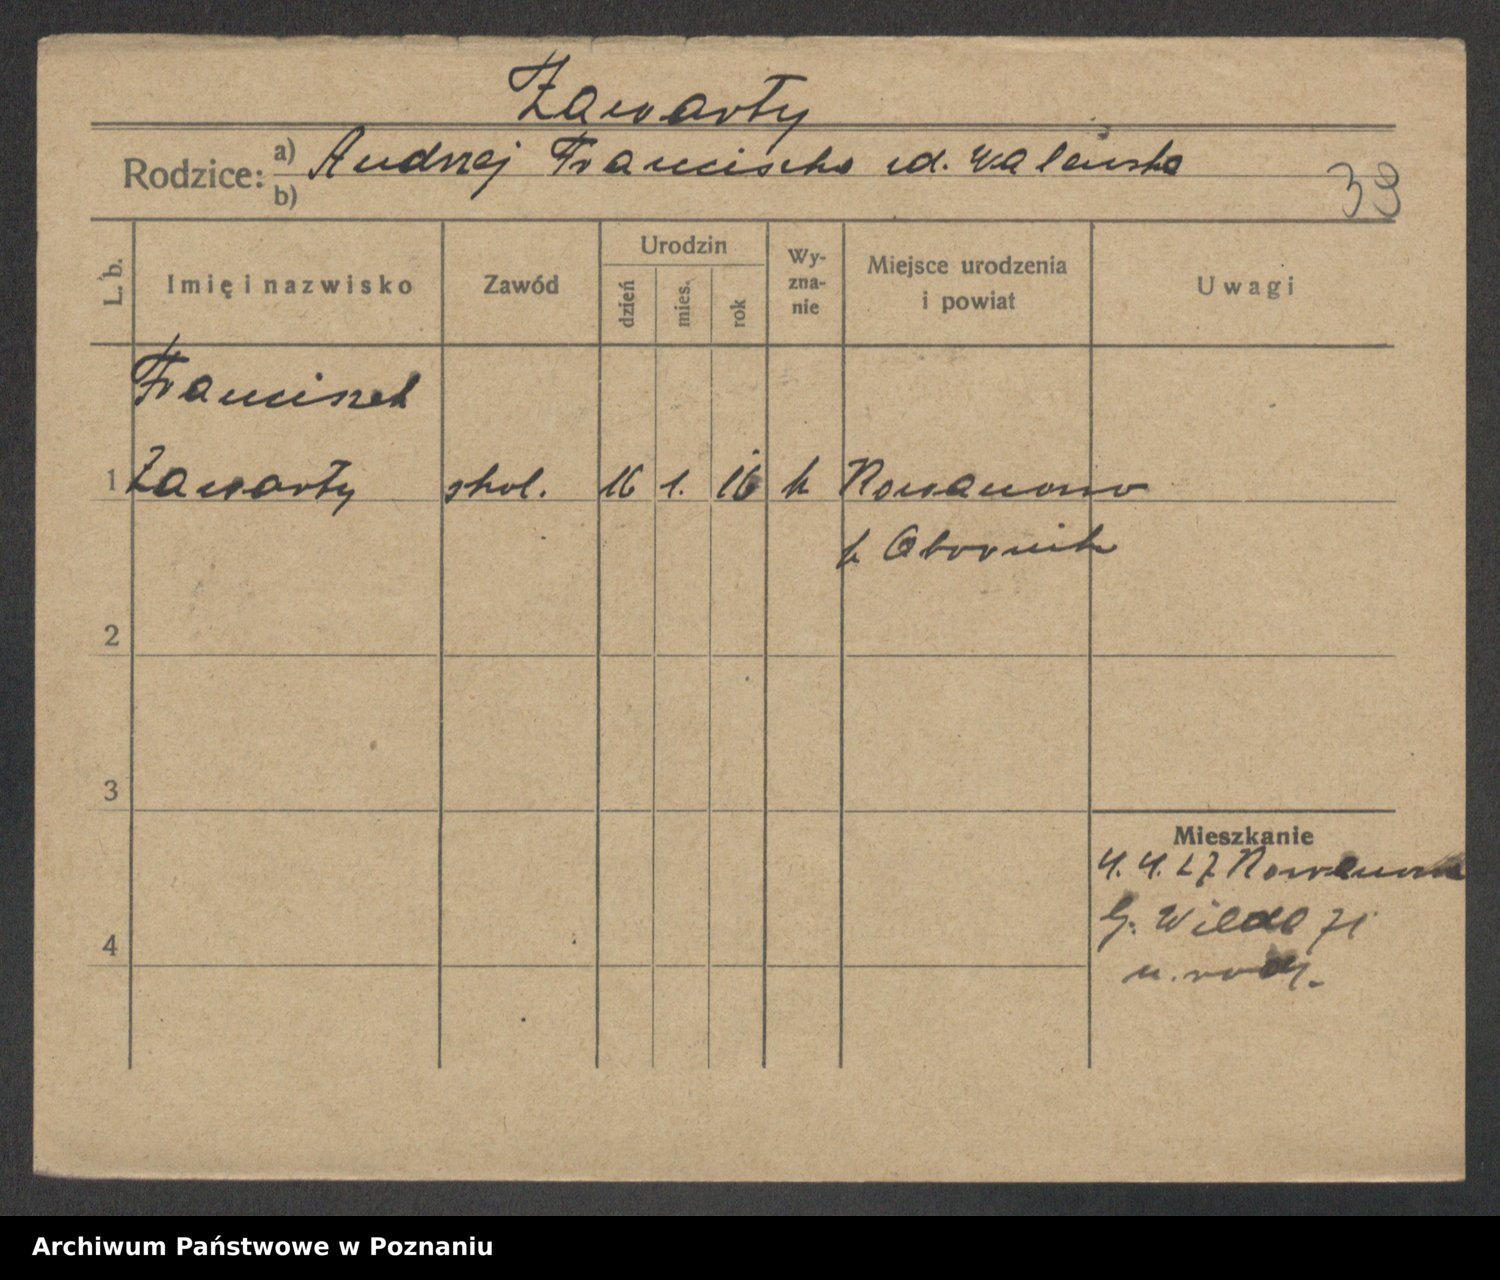 Zawarty
Rodzice: a) Andrzej Franciszka ud. Walenska
b)
38
L. b. Imię i nazwisko Zawód Urodzin dzień mies. rok Wy-zna-nie Miejsce urodzenia i powiat Uwagi
Franciszek
1 Zawarty skol. 16 1. 16 k Nowanowo
k Obornik
2
3
Mieszkanie
4. 4. 27 Nowanowo
G. Wilda 71
4
u. rodz.
Archiwum Państwowe w Poznaniu